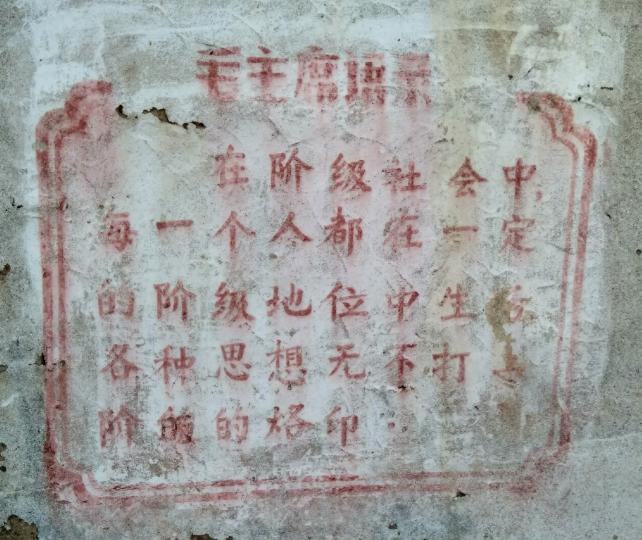 毛主席语录
在阶级社会中,
每一个人都在一定
的阶级地位中生活
各种思想无不打上
阶级的烙印.